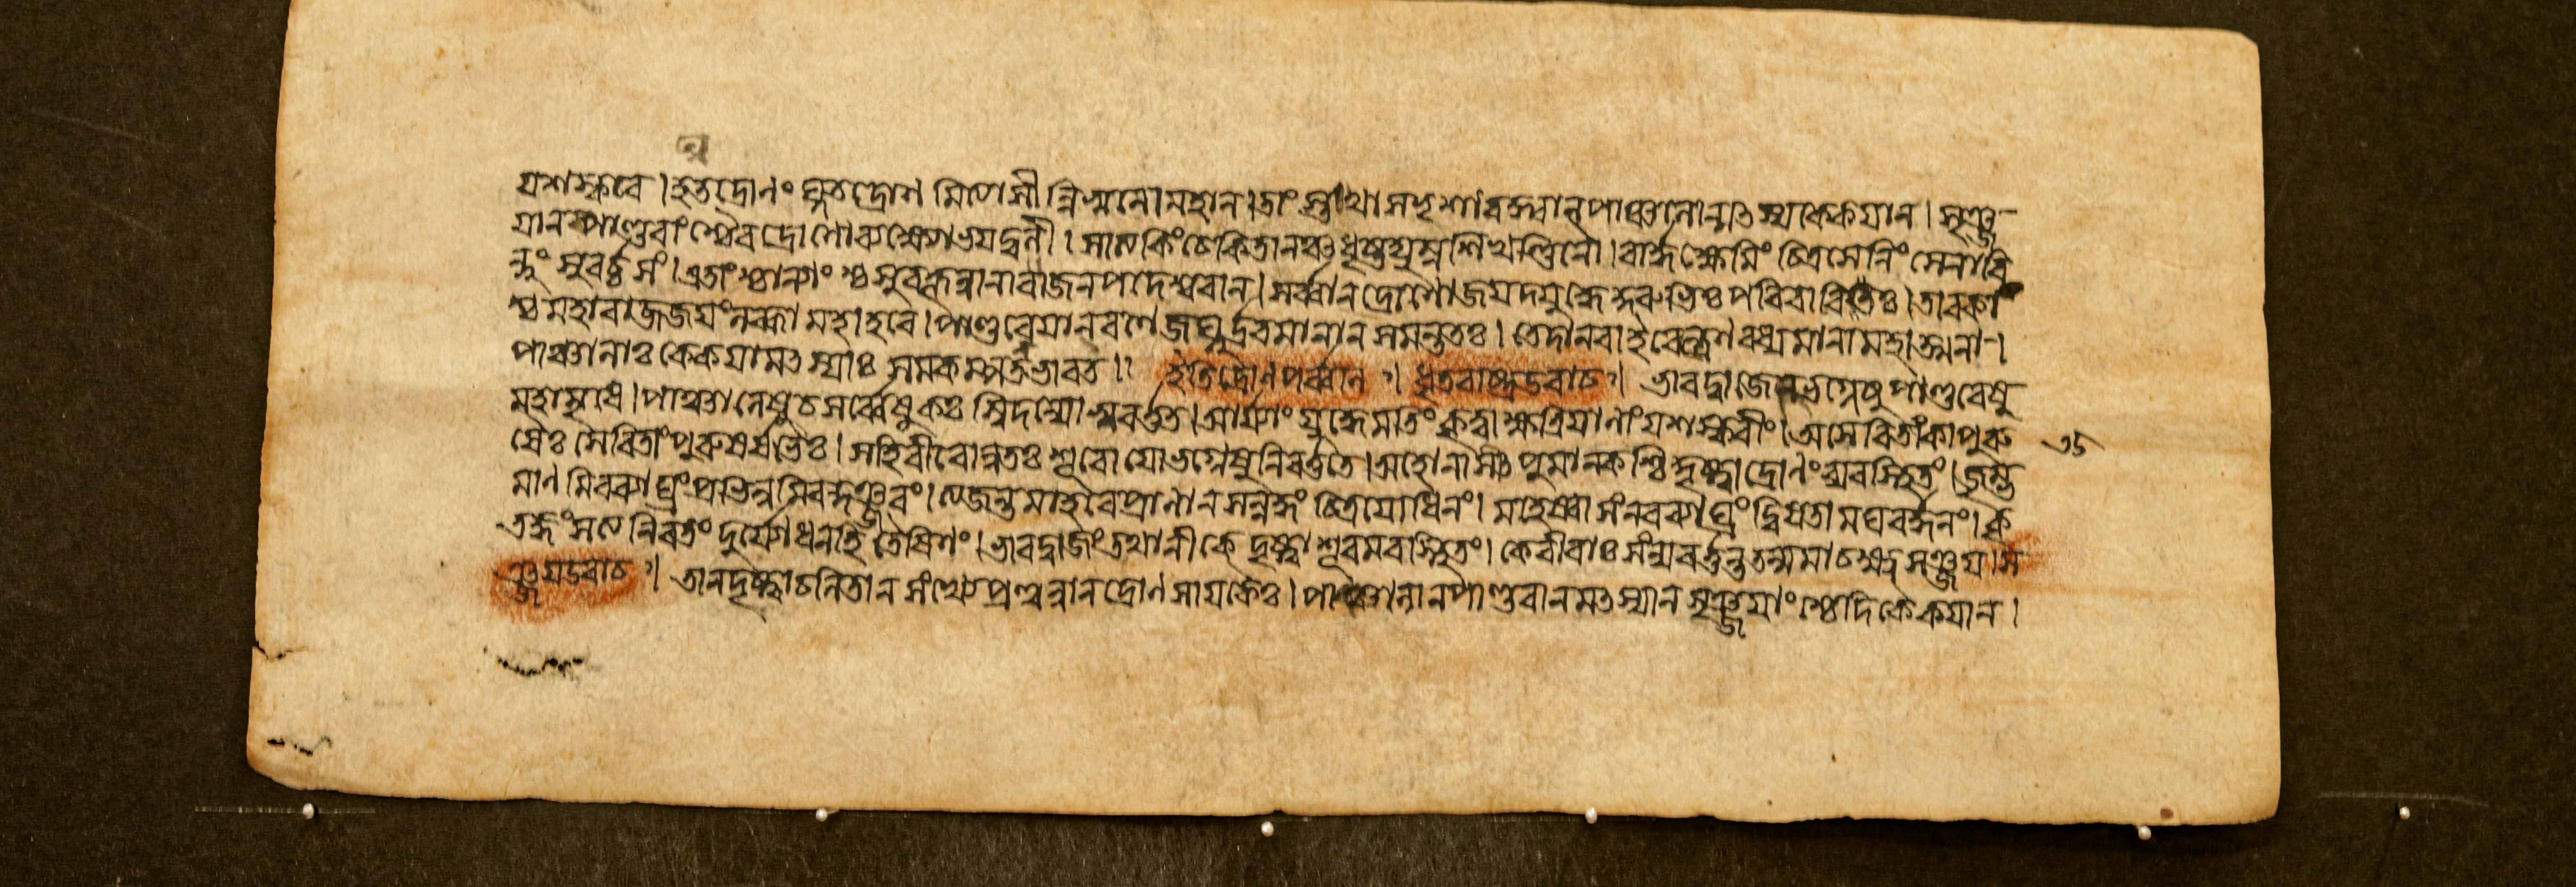 যশস্করে। হতদ্রোণং হতদ্রোণ মিত্যাসীন্নিস্বনো মহান। তাংস্তথা সভৃশং ক্রুদ্ধান পাঞ্চালান্মৎস্যকেকয়ান। সৃঞ্জ
য়ানপাণ্ডবাংশ্চৈব দ্রোণোব্যক্ষোভয়দ্বলী। সাত্যকিং চেকিতানঞ্চ ধৃষ্টদ্যুম্নশিখণ্ডিনৌ। বার্দ্ধক্ষেমিং চিত্রসেনিং সেনাবি
ন্দুং সুবর্চ্চসং। এতাংশ্চান্যাংশ্চ সুবহূন্নানারাজনপদেশ্বরান। সর্ব্বান দ্রোণোজয়দযুদ্ধে কুরুভিঃ পরিবারিতঃ। তাবকা
শ্চ মহারাজ জয়ং লব্ধা মহাহবে। পাণ্ডবেয়ানরণে জঘ্নুর্দ্রবমানান সমন্ততঃ। তেদানবাইবেন্দ্রেণ বধ্যমানামহাত্মনা।
পাঞ্চালাঃ কেকয়ামৎস্যাঃ সমকম্পন্তভারত॥ ইতিদ্রোণপর্ব্বনি॥ ধৃতরাষ্ট্রউবাচ॥ ভারদ্বাজেনভগ্নেষু পাণ্ডবেষু
মহামৃধে। পাঞ্চালেষুচ সর্ব্বেষুকশ্চিদন্যোভ্যবর্ত্তত। আর্য্যাং যুদ্ধেমতিং কৃত্বাক্ষত্রিয়ানাং যশস্করীং। অসেবিতাংকাপুরু
ষৈঃ সেবিতাং পুরুষর্ষভৈঃ। সহিবীরোন্নতঃ শূরো যোভগ্নেষুনিবর্ত্ততে। অহোনাসীৎ পুমানকশ্চিদ্দৃষ্ট্বাদ্রোণং ব্যবস্থিতং। জৃম্ভ ৩৫
মাণ মিবব্যাঘ্রং প্রভিন্নমিবকুঞ্জরং। ত্যজন্তমাহবেপ্রাণান সন্নদ্ধং চিত্রযোধিনং। মহেষ্বাসং নরব্যাঘ্রং দ্বিষতামঘবর্দ্ধনং। কৃ
তজ্ঞং সত্যনিরতং দুর্য্যোধনহিতৈষিণং। ভারদ্বাজং তথানীকে দৃষ্ট্বাশূরমবস্থিতং। কেবীরাঃ সংন্যবর্ত্তন্ততন্মমাচক্ষ্বসঞ্জয়। স
ঞ্জয়উবাচ॥ তানদৃষ্ট্বাচলিতান সংখ্যেপ্রণুন্নানদ্রোণসায়কৈঃ। পাঞ্চালানপাণ্ডবানমৎস্যান সৃঞ্জয়াংশ্চেদিকেকয়ান।